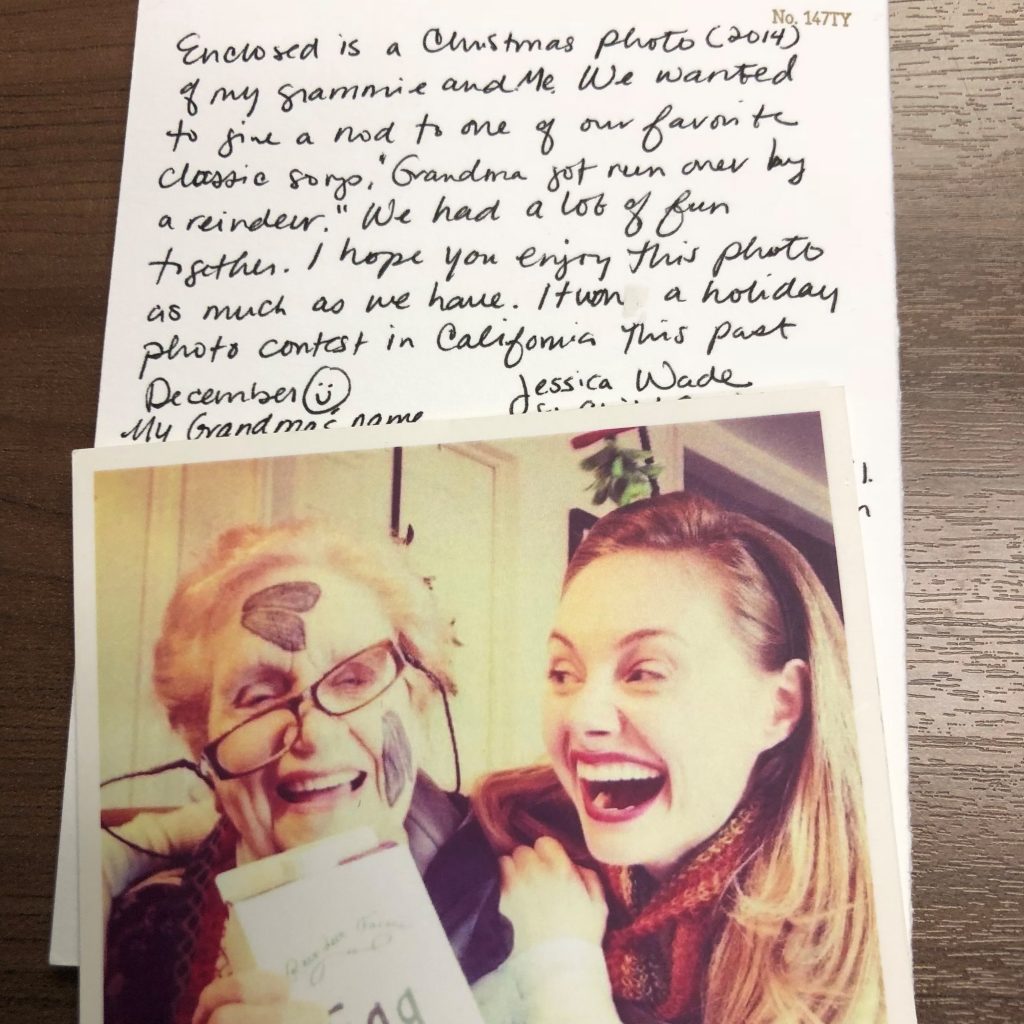 No. 147TY
Enclosed is a Christmas photo (2014)
of my grammie and Me. We wanted
to give a nod to one of our favorite
classic songs, "Grandma got run over by
a reindeer." We had a lot of fun
together. I hope you enjoy this photo
as much as we have. It won a holiday
photo contest in California this past
December
Jessica Wade
My Grandma's name